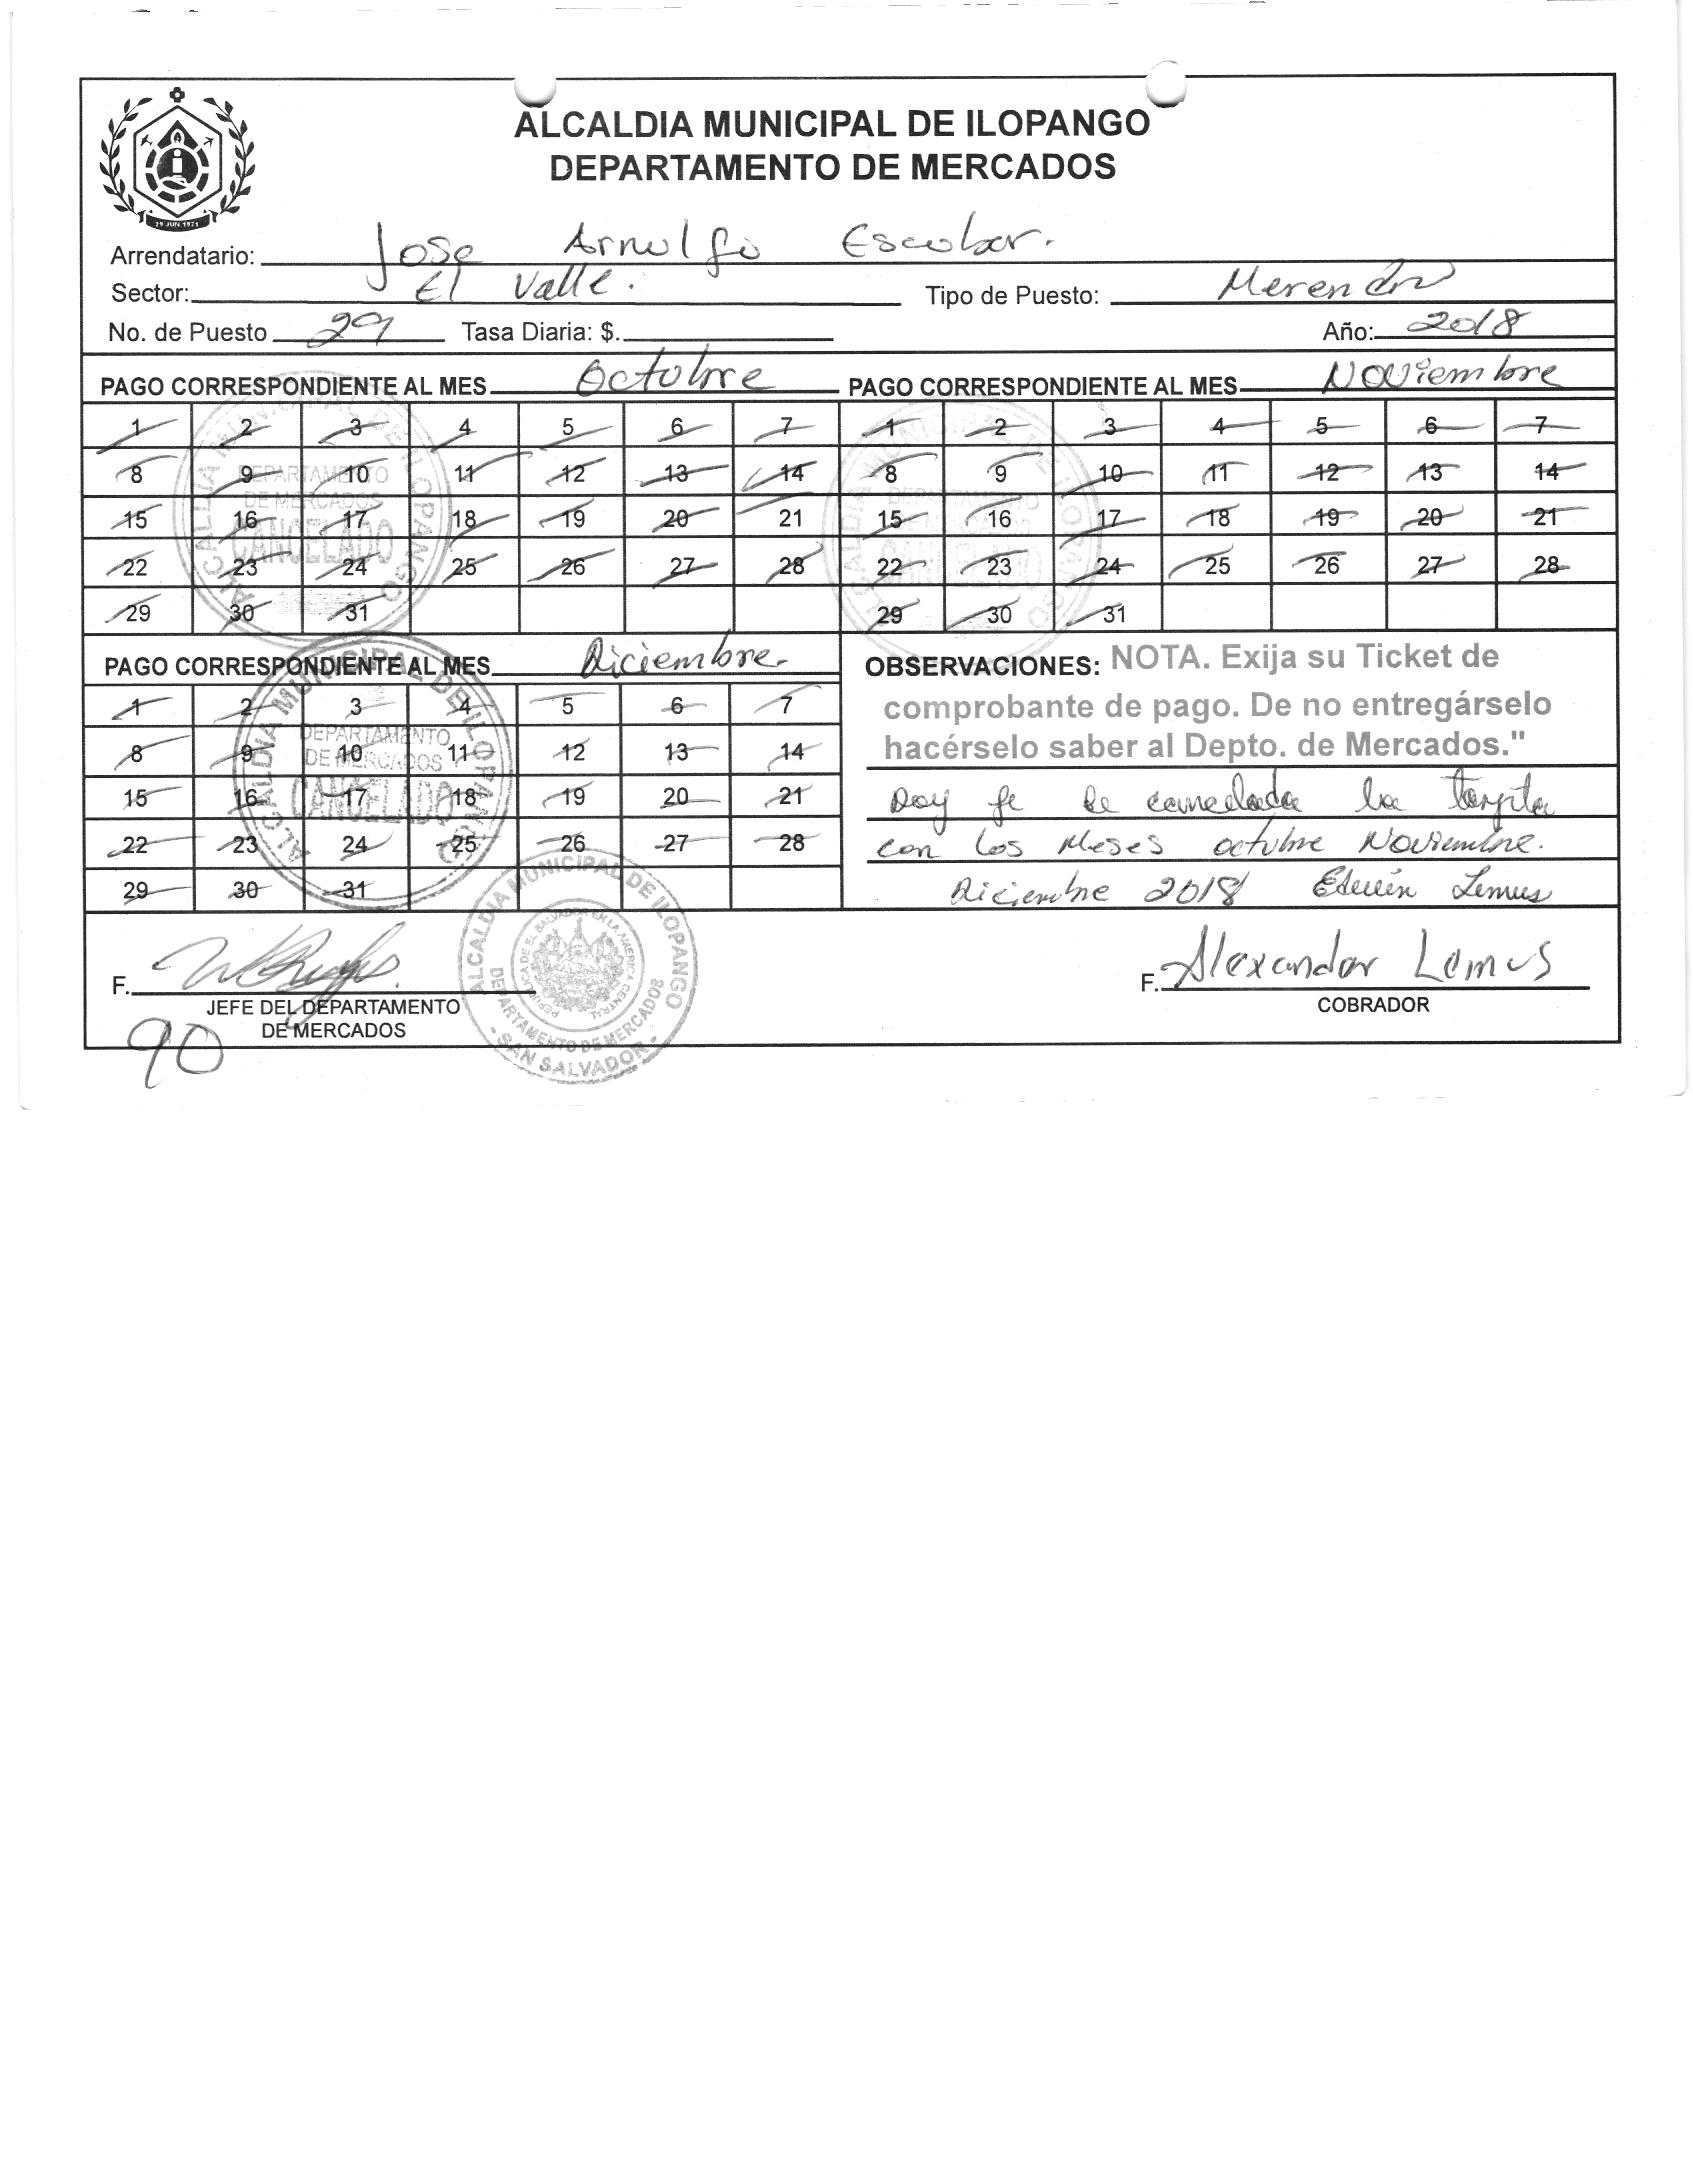 ALCALDIA MUNICIPAL DE ILOPANGO
DEPARTAMENTO DE MERCADOS
29 JUN 1971
Arrendatario: Jose Arnulfo Escobar.
Sector: El Valle.
Tipo de Puesto:
No. de Puesto 29 Tasa Diaria: $. Año: 2018
PAGO CORRESPONDIENTE AL MES Octubre
1 2 3 4 5 6 7
8 9 10 11 12 13 14
15 16 17 18 19 20 21
22 23 24 25 26 27 28
29 30 31
PAGO CORRESPONDIENTE AL MES Noviembre
1 2 3 4 5 6 7
8 9 10 11 12 13 14
15 16 17 18 19 20 21
22 23 24 25 26 27 28
29 30 31
ALCALDIA MUNICIPAL DE ILOPANGO
DEPARTAMENTO
DE MERCADOS
CANCELADO
PAGO CORRESPONDIENTE AL MES Diciembre.
1 2 3 4 5 6 7
8 9 10 11 12 13 14
15 16 17 18 19 20 21
22 23 24 25 26 27 28
29 30 31
ALCALDIA MUNICIPAL DE ILOPANGO
DEPARTAMENTO
DE MERCADOS
CANCELADO
OBSERVACIONES: NOTA. Exija su Ticket de
comprobante de pago. De no entregárselo
hacérselo saber al Depto. de Mercados."
Doy fe de cancelada la tarjeta
con los Meses octubre Noviembre.
Diciembre 2018 Edwin Lemus
F.
JEFE DEL DEPARTAMENTO
DE MERCADOS
90
ALCALDIA MUNICIPAL DE ILOPANGO
REPUBLICA DE EL SALVADOR EN LA AMERICA CENTRAL
DEPARTAMENTO DE MERCADOS
- SAN SALVADOR -
F. Alexander Lemus
COBRADOR